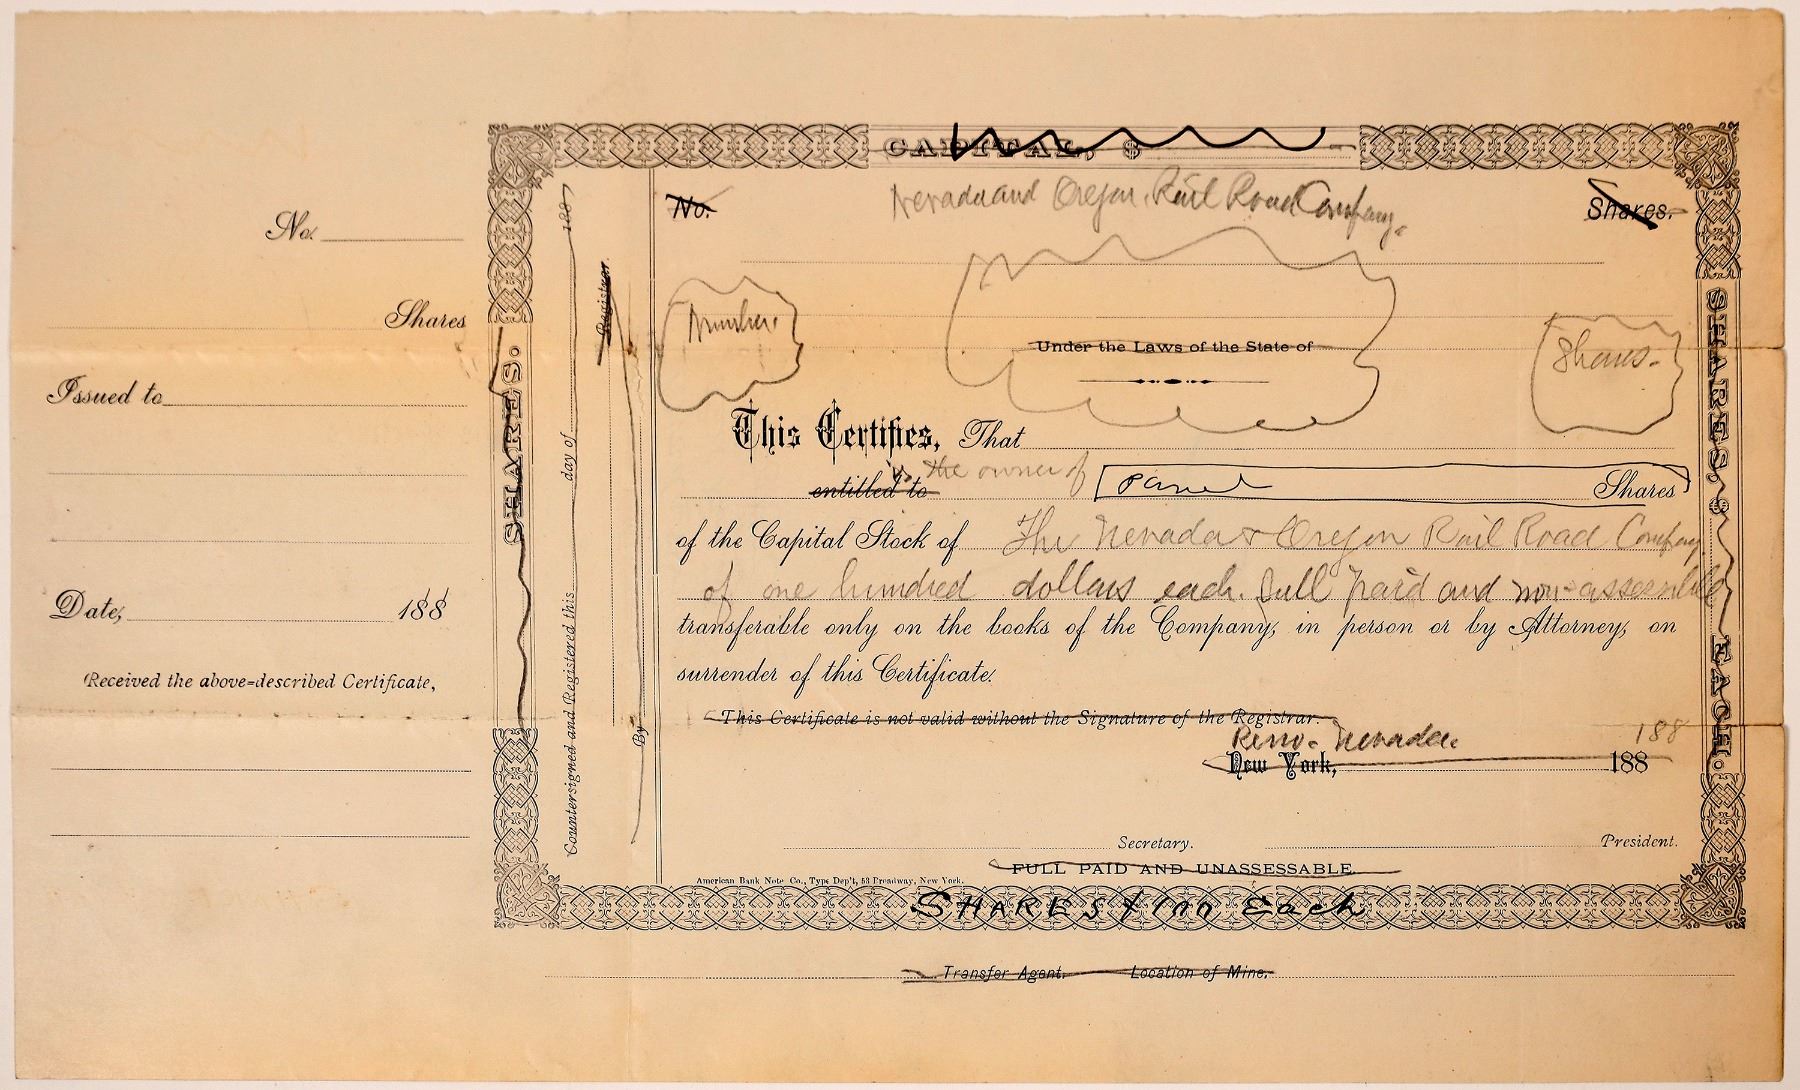 No.
Shares
Issued to
Date, 188
Received the above-described Certificate,
SHARES.
Countersigned and Registered this day of 188
Registrar.
By
CAPITAL, $
No.
Nevada and Oregon Rail Road Company.
Shares.
Number
Under the Laws of the State of
Shares.
This Certifies, That
is the owner of
entitled to Panel Shares
of the Capital Stock of The Nevada & Oregon Rail Road Company
of one hundred dollars each. full paid and non-assessable
transferable only on the books of the Company, in person or by Attorney, on
surrender of this Certificate.
This Certificate is not valid without the Signature of the Registrar.
Reno. Nevada. 188
New York, 188
Secretary. President.
FULL PAID AND UNASSESSABLE.
American Bank Note Co., Typo Dep't, 53 Broadway, New York.
SHARES $100 Each
Transfer Agent. Location of Mine.
SHARES, $ EACH.